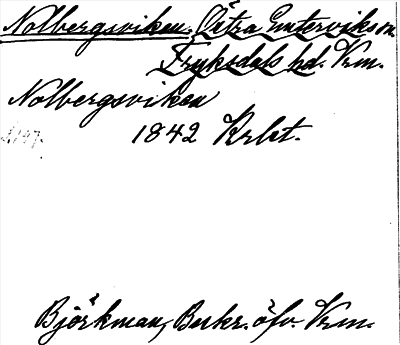 Nolbergsviken. Östra Emterviks sn
Fryksdals hd. Vrm.
Nolbergsviken
1842 Krbt.
Björkman, Beskr. öfv. Vrm.